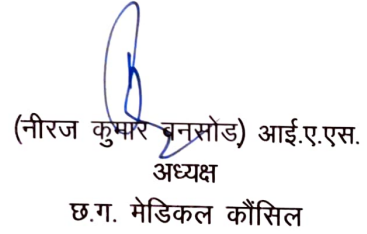 (नीरज कुमार बनसोड) आई.ए.एस.
अध्यक्ष
छ.ग. मेडिकल कौंसिल